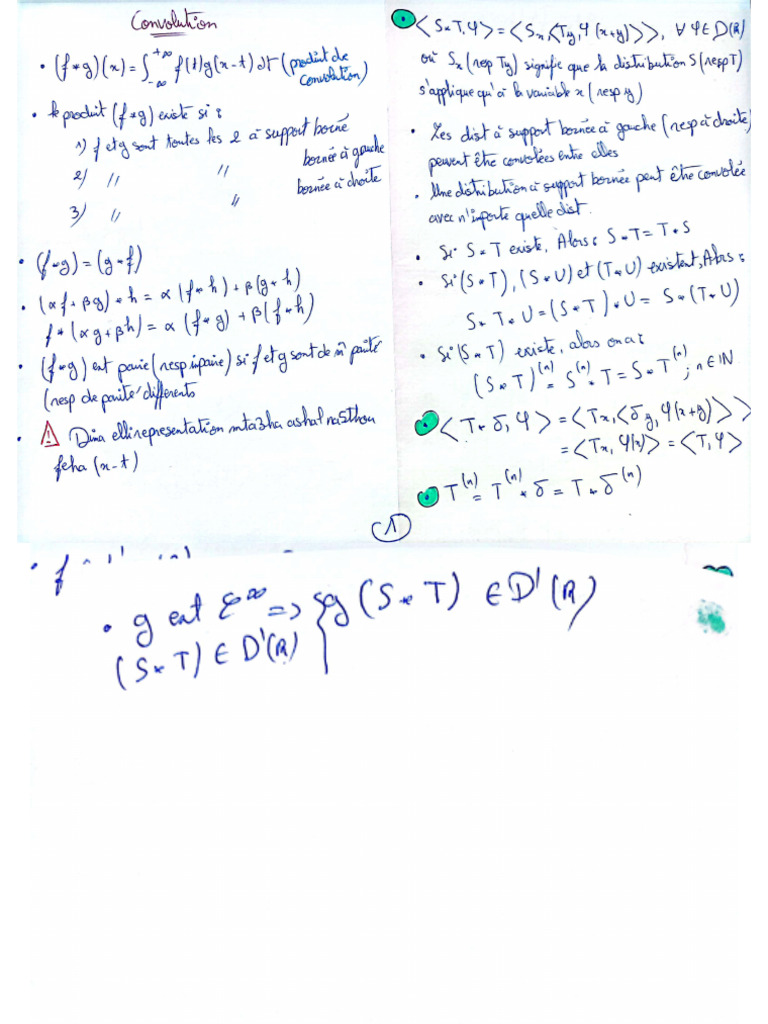 Convolution
• (f*g)(x) = ∫_{-∞}^{+∞} f(t)g(x-t)dt (produit de convolution)
• le produit (f*g) existe si :
1) f et g sont toutes les 2 à support borné
2) " " bornée à gauche
3) " " bornée à droite
• (f*g) = (g*f)
• (αf + βg) * h = α(f*h) + β(g*h)
f*(αg + βh) = α(f*g) + β(f*h)
• (f*g) est paire (resp impaire) si f et g sont de m̂ parité
(resp de parité différents
• ⚠ Dima elli representation mta3ha ashal na5thou
feha (x-t)
• <S*T,φ> = <S_x,<T_y,φ(x+y)>>, ∀ φ ∈ D(R)
où S_x (resp T_y) signifie que la distribution S (resp T)
s'applique qu'à la variable x (resp y)
• Les dist à support bornée à gauche (resp à droite)
peuvent être convolées entre elles
• Une distribution à support bornée peut être convolée
avec n'importe quelle dist.
• Si S*T existe, Alors : S*T = T*S
• Si (S*T), (S*U) et (T*U) existent, Alors :
S*T*U = (S*T)*U = S*(T*U)
• Si (S*T) existe, alors on a :
(S*T)^(n) = S^(n)*T = S*T^(n) ; n ∈ IN
• <T*δ,φ> = <T_x,<δ_y,φ(x+y)>>
= <T_x,φ(x)> = <T,φ>
• T^(n) = T^(n)*δ = T*δ^(n)
1
• g est C^∞ => { g(S*T) ∈ D'(R)
(S*T) ∈ D'(R)